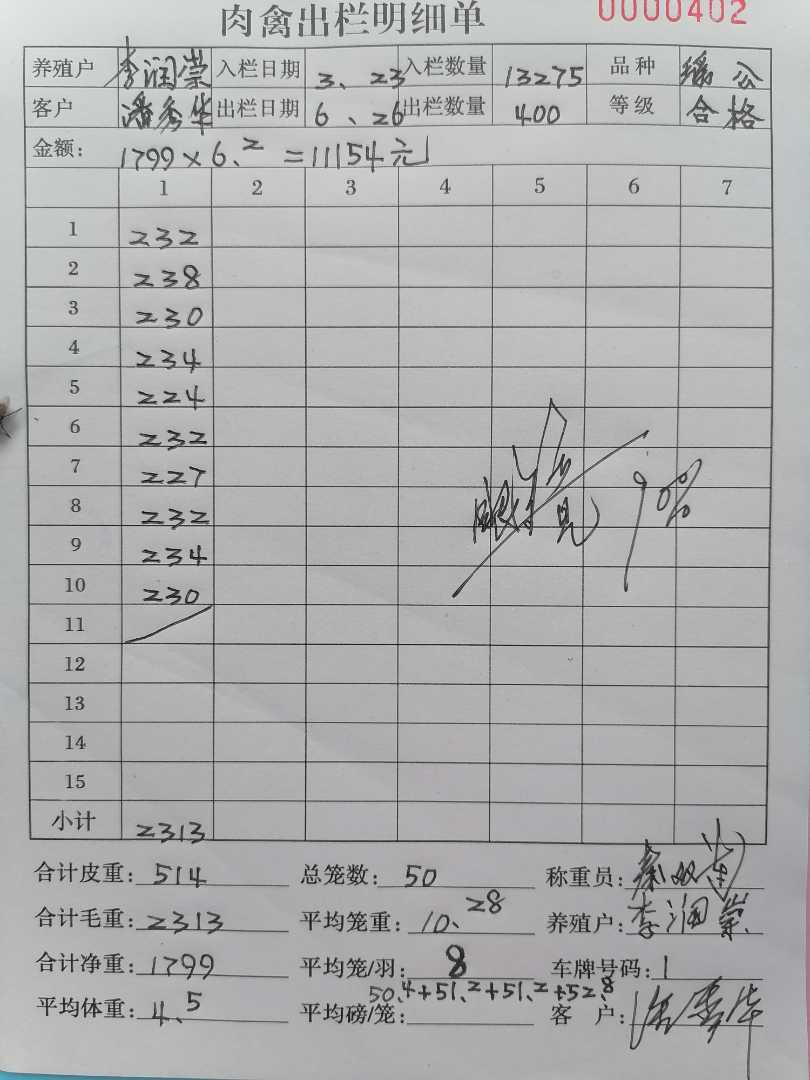 肉禽出栏明细单 0000402
养殖户 李润崇 入栏日期 3、23 入栏数量 13275 品种 瑶公
客户 潘秀华 出栏日期 6、26 出栏数量 400 等级 合格
金额: 1799×6、2=11154元
1 2 3 4 5 6 7
1 232
2 238
3 230
4 234
5 224
6 232
7 227
8 232
9 234
10 230
9%
11
12
13
14
15
小计 2313
合计皮重: 514 总笼数: 50 称重员:
合计毛重: 2313 平均笼重: 10、28 养殖户: 李润崇
合计净重: 1799 平均笼/羽: 8 车牌号码: 1
50.4+51.2+51.2+52.8
平均体重: 4、5 平均磅/笼: 客 户: